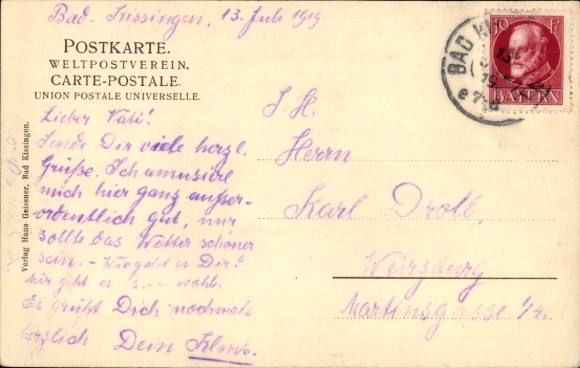 Bad-Kissingen, 13. Juli 1919.
POSTKARTE.
WELTPOSTVEREIN.
CARTE-POSTALE.
UNION POSTALE UNIVERSELLE.
10 Pf
BAYERN
BAD KIS
Lieber Vati!
Sende Dir viele herzl.
Grüße. Ich amusiere
mich hier ganz außer-
ordentlich gut, nur
sollte das Wetter schöner
sein. - Wie geht es Dir?
mir geht es s. -- wohl.
Es grüßt Dich nochmals
herzlich Dein Klaus.
S. H.
Herrn
Karl Droll,
Würzburg
Martinsgasse 1/2.
Verlag Hans Geissner, Bad Kissingen.